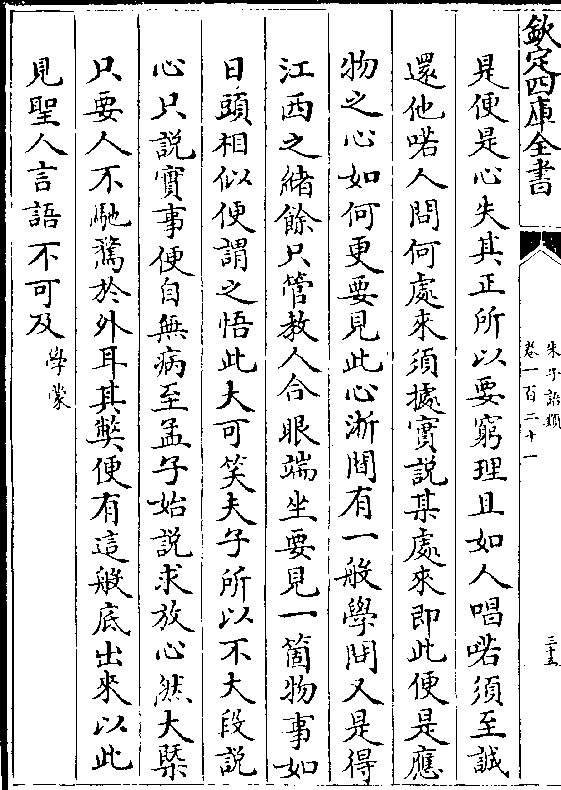 欽定四庫全書
朱子語類
卷一百二十一
三十五
是便是心失其正所以要窮理且如人唱喏須至誠
還他喏人問何處來須據實說某處來即此便是應
物之心如何更要見此心浙間有一般學問又是得
江西之緒餘只管教人合眼端坐要見一箇物事如
日頭相似便謂之悟此大可笑夫子所以不大段說
心只說實事便自無病至孟子始說求放心然大槩
只要人不馳騖於外耳其弊便有這般底出來以此
見聖人言語不可及學蒙